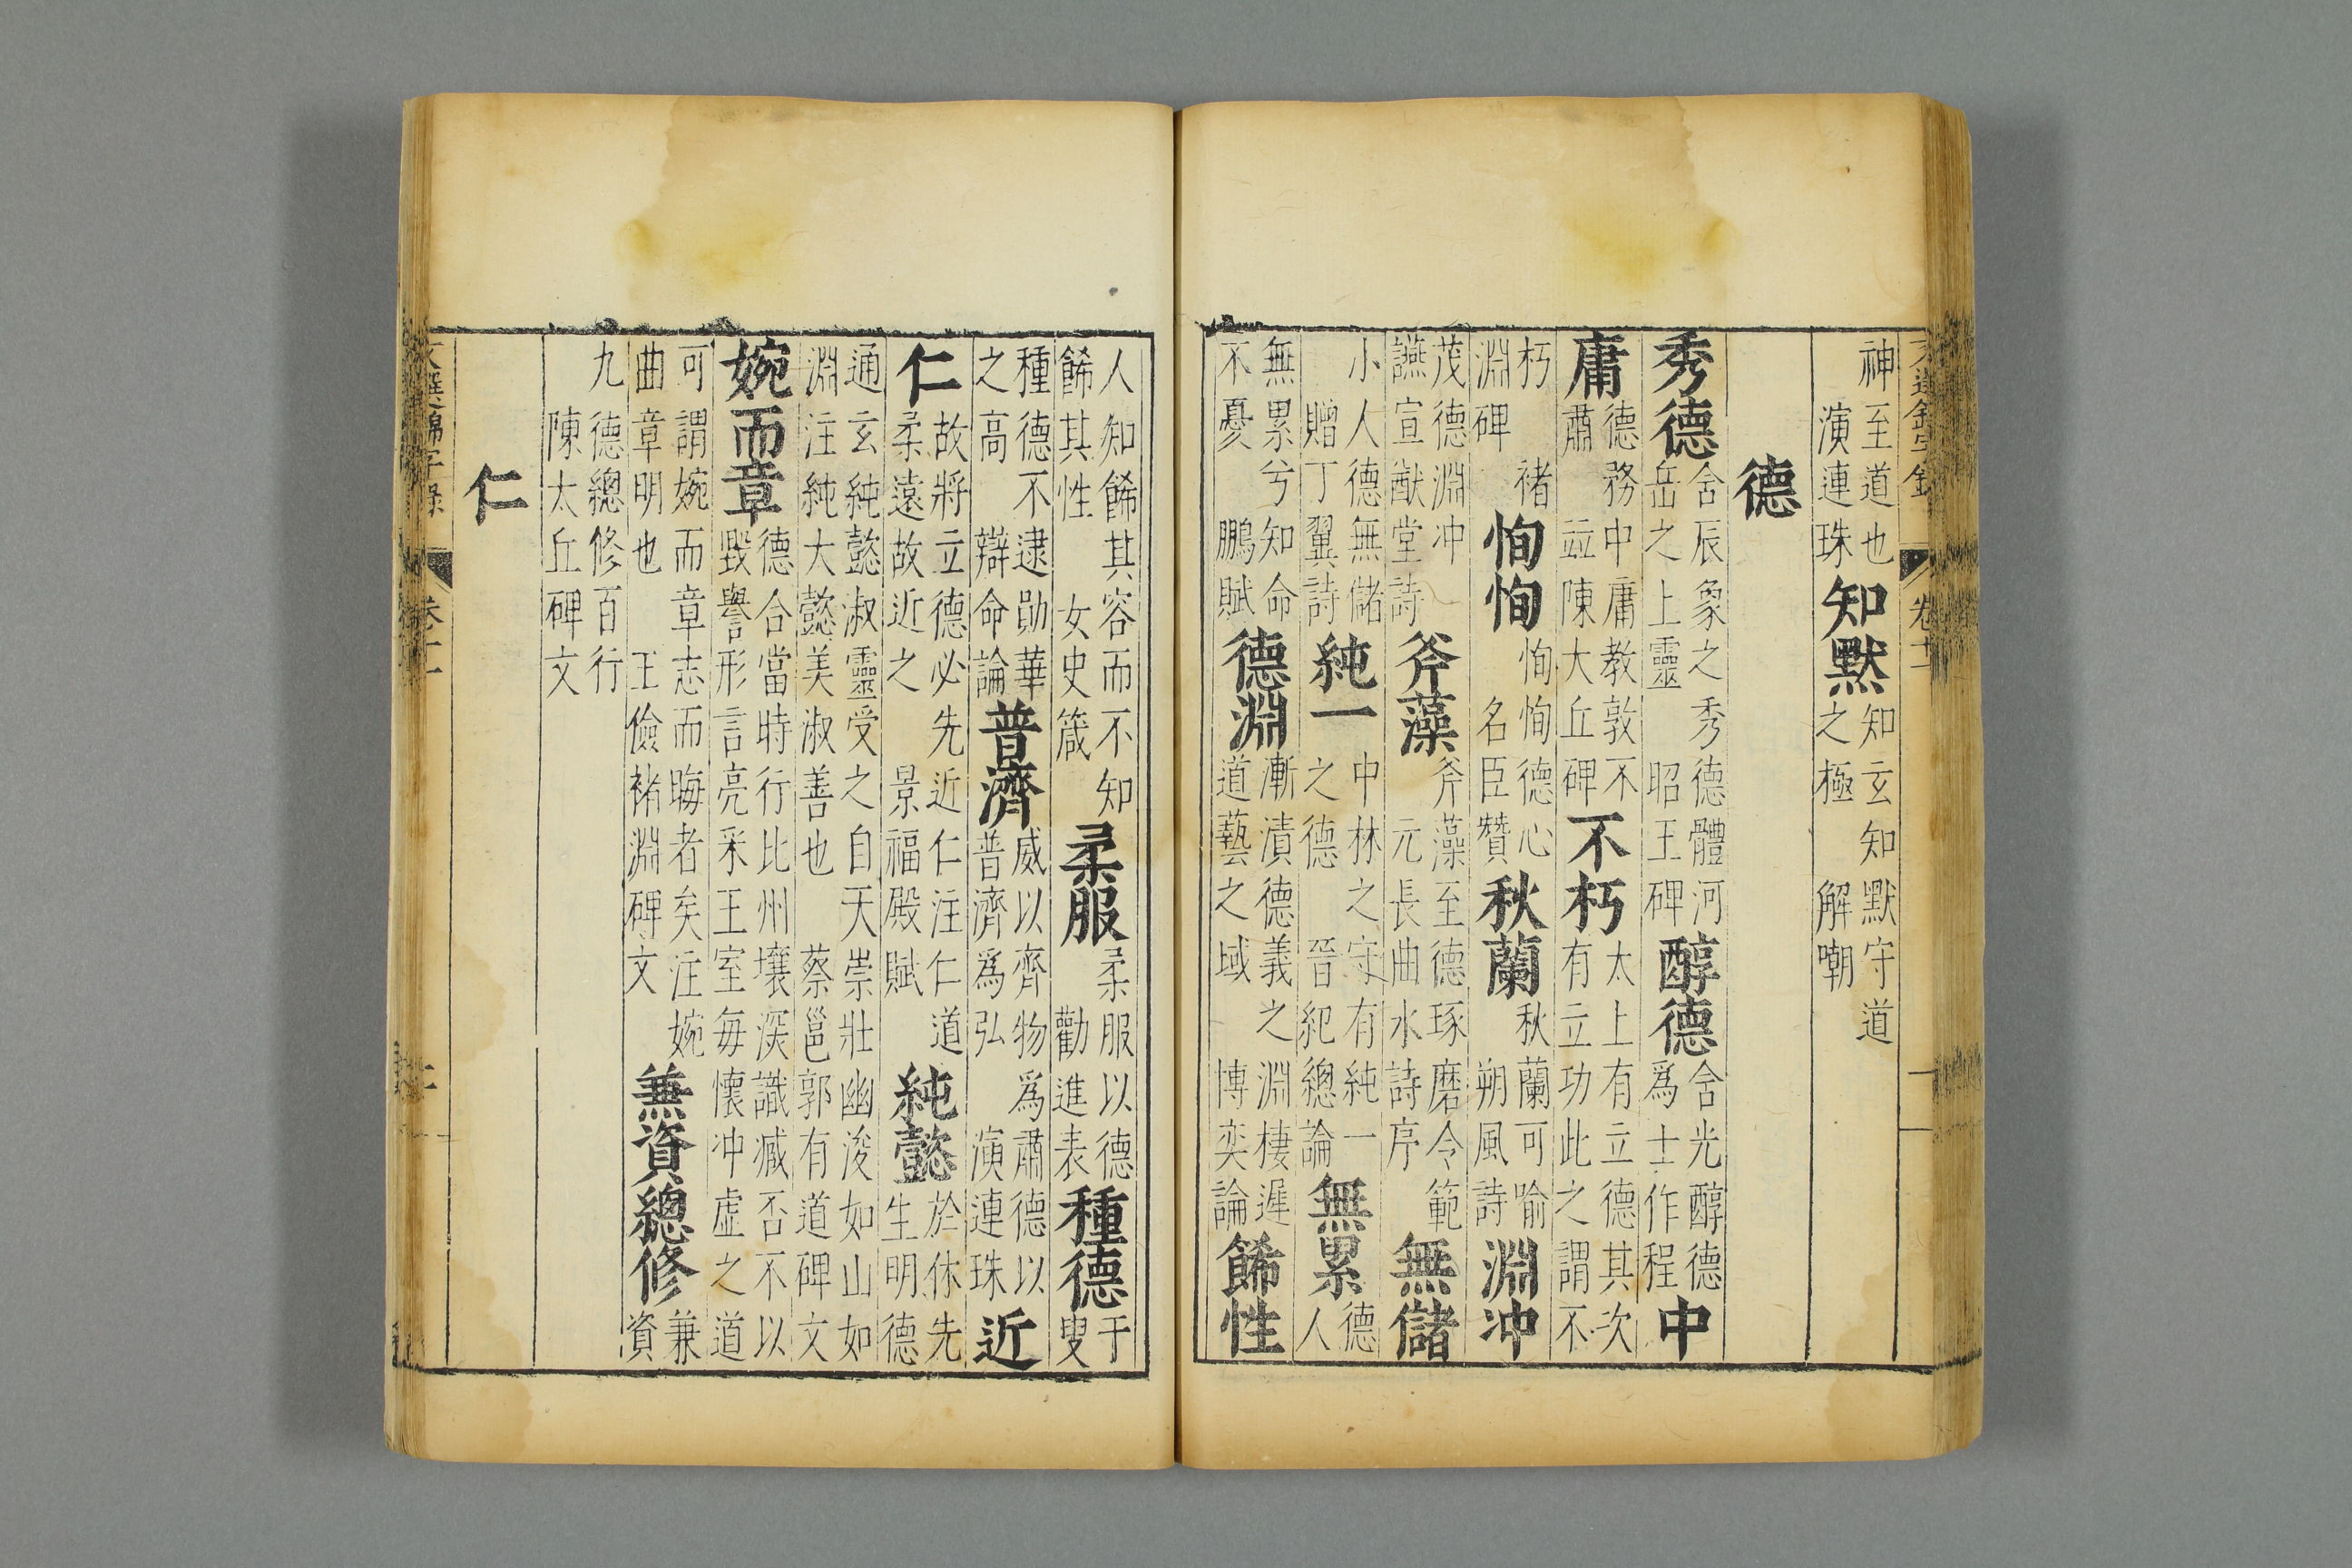 神至道也演連珠知默知玄知默守道之極解嘲
德
秀德含辰象之秀德體河岳之上靈昭王碑醇德含光醇德爲士作程中
庸德務中庸教敦不肅竝陳大丘碑不朽太上有立德其次有立功此之謂不
朽褚淵碑恂恂恂恂德心名臣贊秋蘭秋蘭可喻朔風詩淵冲
茂德淵冲讌宣猷堂詩斧藻斧藻至德琢磨令範元長曲水詩序無儲
小人德無儲贈丁翼詩純一中林之守有純一之德晉紀總論無累德人
無累兮知命不憂鵩賦德淵漸漬德義之淵棲遲道藝之域博奕論餙性
人知餙其容而不知餙其性女史箴柔服柔服以德勸進表種德于叟
種德不逮勛華之高辯命論普濟威以齊物爲肅德以普濟爲弘演連珠近
仁故將立德必先近仁注仁道柔遠故近之景福殿賦純懿於休先生明德
通玄純懿淑靈受之自天崇壯幽浚如山如淵注純大懿美淑善也蔡邕郭有道碑文
婉而章德合當時行比州壤深識臧否不以毀譽形言亮采王室每懷冲虛之道
可謂婉而章志而晦者矣注婉曲章明也王儉褚淵碑文兼資總修兼資
九德總修百行陳太丘碑文
仁
文選錦字錄